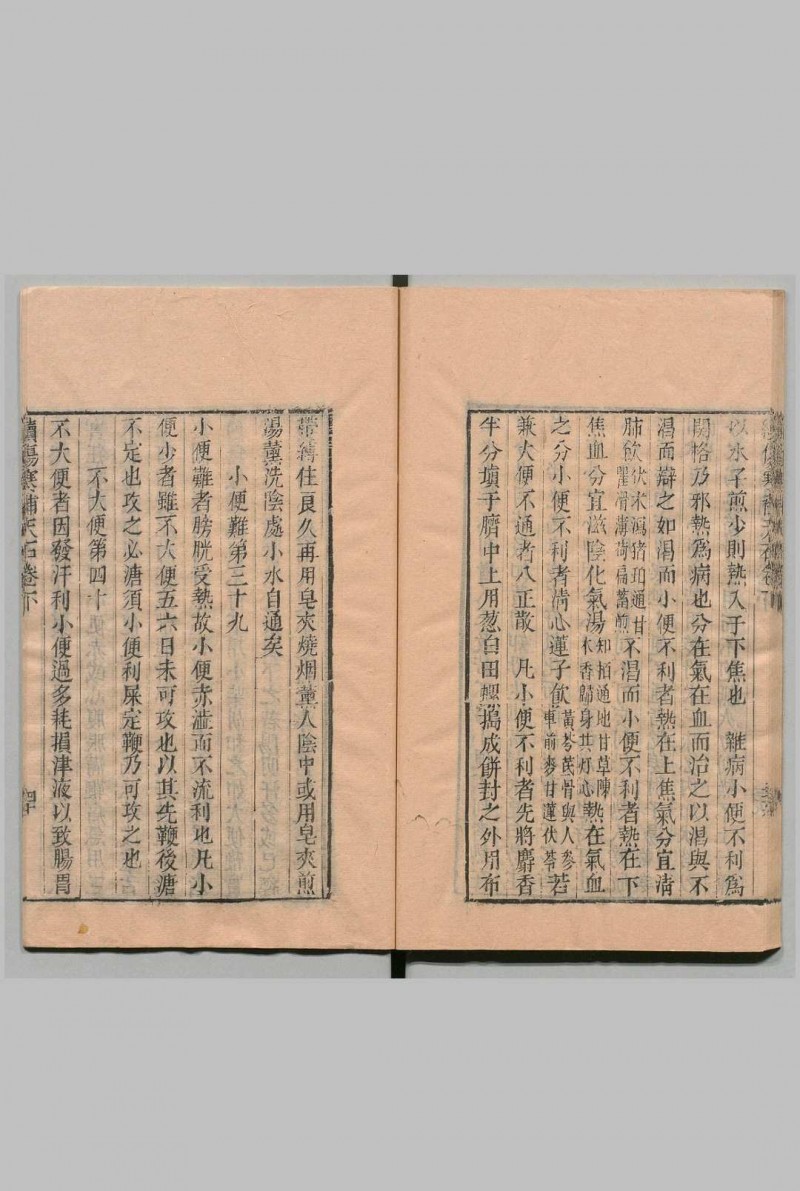 以水子煎少則熱入于下焦也　雜病小便不利爲
関格乃邪熱爲病也分在氣在血而治之以渴與不
渴而辯之如渴而小便不利者熱在上焦氣分宜淸
肺飲伏米瀉猪珀通甘瞿滑薄萹蓄煎不渴而小便不利者熱在下
焦血分宜滋陰化氣湯知栢通地甘草陳木香歸身其灯心熱在氣血
之分小便不利者淸心蓮子飲黃芩芪骨與人參車前麥甘蓮伏苓若
兼大便不通者八正散　凡小便不利者先將麝香
半分塡于臍中上用葱白田螺搗成餅封之外用布
帶縛住良久再用皂夾燒烟薰入陰中或用皂夾煎
湯薰洗陰處小水自通矣
小便難第三十九
小便難者膀胱受熱故小便赤澁而不流利也凡小
便少者雖不大便五六日未可攻也以其先鞭後溏
不定也攻之必溏須小便利屎定鞭乃可攻之也
不大便第四十
不大便者因發汗利小便過多耗損津液以致腸胃
續傷寒補天石卷下
四十